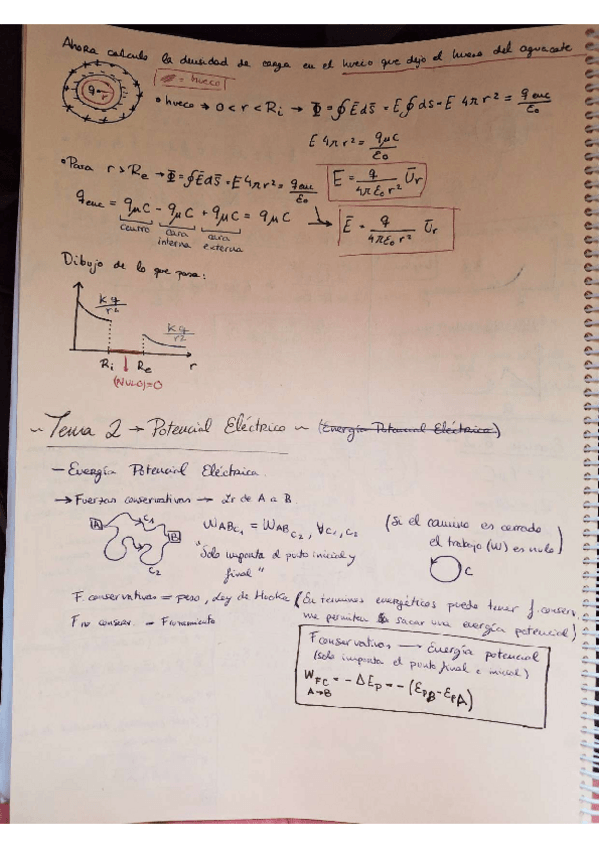 Ahora calculo la densidad de carga en el hueco que dejo el hueso del aguacate
= hueco
q r
• hueco → 0 < r < Ri → Φ = ∮ E̅ ds̅ = E ∮ ds = E 4πr² = q enc / ε₀
E 4πr² = qμC / ε₀
• Para r > Re → Φ = ∮ E̅ ds̅ = E 4πr² = q enc / ε₀
E = q / 4πε₀r² U̅r
q enc = qμC - qμC + qμC = qμC → E̅ = q / 4πε₀r² U̅r
centro cara interna cara externa
Dibujo de lo que pasa:
Kq / r²
Kq / r²
Ri Re r
(NULO)=0
~ Tema 2 → Potencial Eléctrico ~ (Energía Potencial Eléctrica)
- Energía Potencial Eléctrica.
→ Fuerzas conservativas → Ir de A a B.
A C₁ B C₂
W AB C₁ = W AB C₂, ∀ C₁, C₂
"Solo importa el punto inicial y
final"
(Si el camino es cerrado
el trabajo (W) es nulo)
C
F conservativas = peso, Ley de Hooke (En terminos energéticos puedo tener f. conserv.
me permitan sacar una energía potencial)
F no conserv. → Frozamiento
F conservativas → Energía potencial
(solo importa el punto final e inicial)
W FC A→B = - ΔEp = - (EpB - EpA)